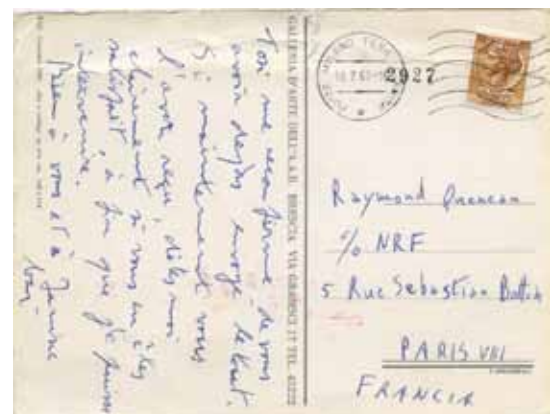 Toni me reconfirme de vous
avoir dejas envoyé le tout.
Si maintenant vous
l'avez reçu dites moi
clairement si vous en êtes
satisfait, à fin que je puisse
intervenire.
Bien à vous et à Janine
baj
GALLERIA D'ARTE DELL'A.A.B. BRESCIA VIA GRAMSCI 17 TEL.
MILANO
2927
Raymond Queneau
c/o NRF
5 Rue Sebastien Bottin
PARIS
FRANCIA